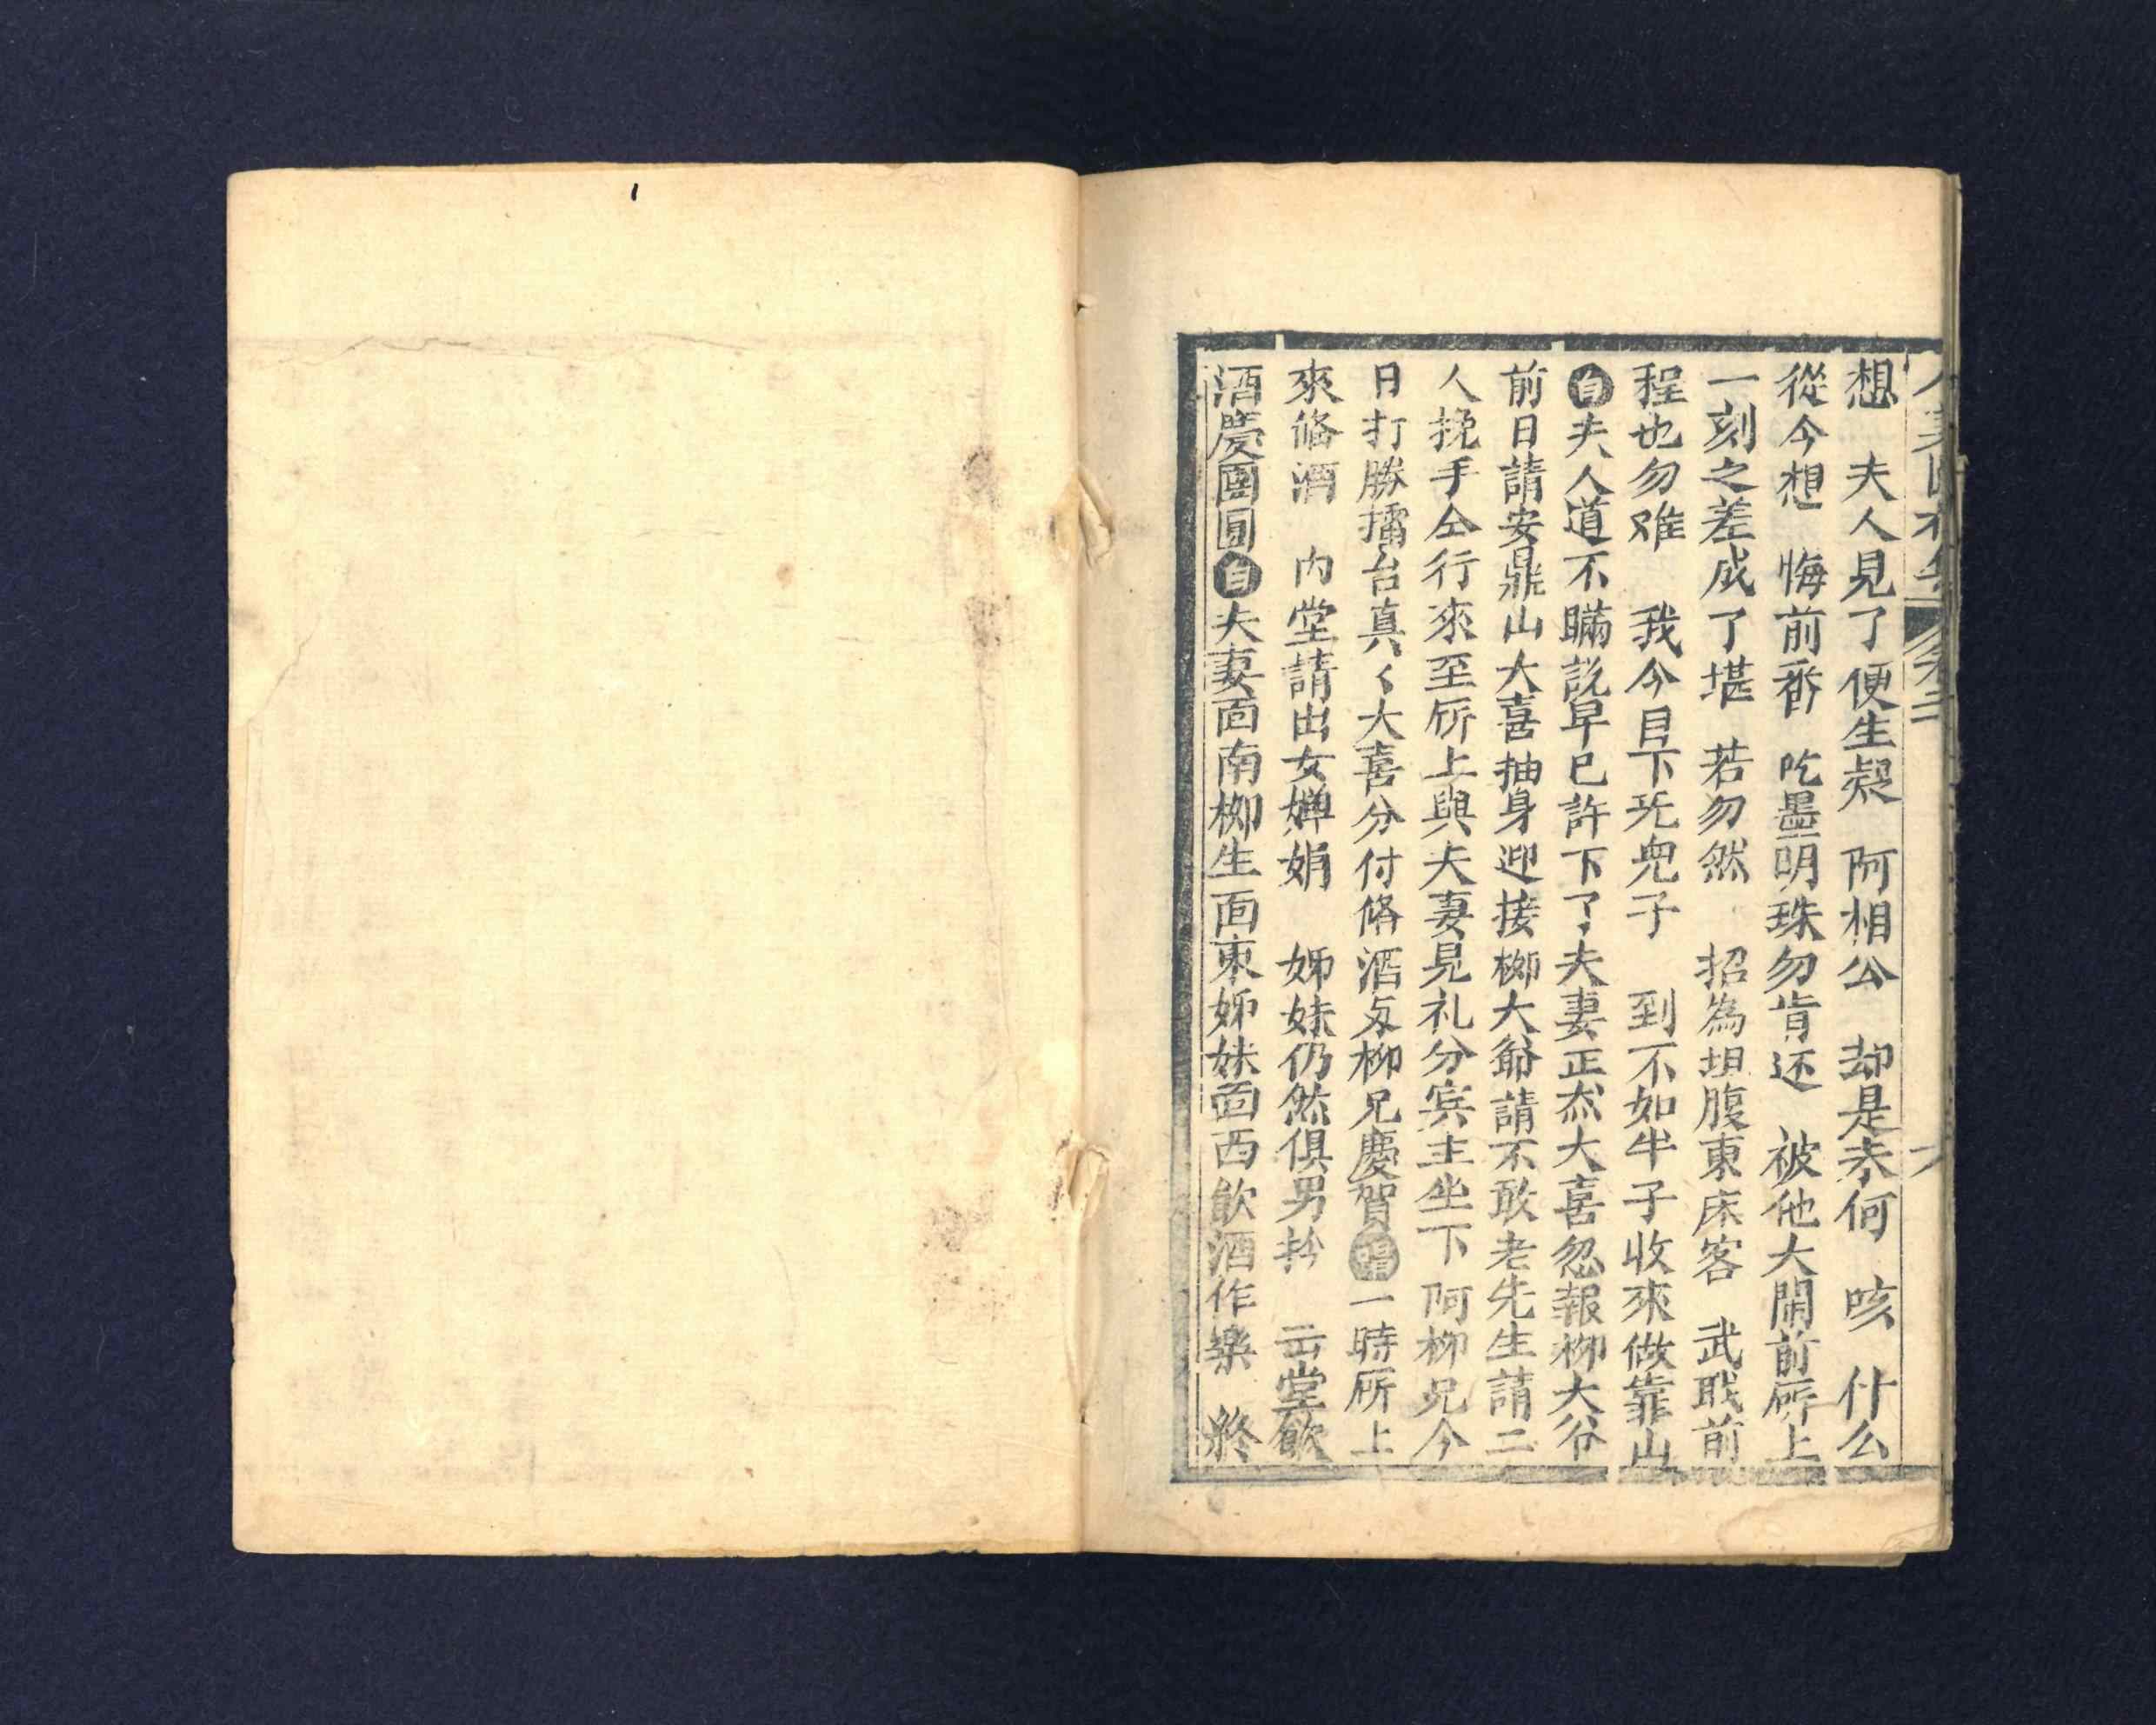 想 夫人見了便生愁 阿相公 却是未何 咳 什么
從今想 悔前番 吃墨明珠勿肯还 被他大鬧前㕔上
一刻之差成了堪 若勿然 招為坦腹東床客 武戝前
程也勿难 我今目下旡兜子 到不如半子收來做靠山
白夫人道不瞞說早已許下了夫妻正杰大喜忽報柳大爷
前日請安鼎山大喜抽身迎接柳大爺請不敢老先生請二
人挽手仝行來至㕔上與夫妻見礼分宾主坐下阿柳兄今
日打勝擂台真〻大喜分付俻酒与柳兄慶賀唱一時㕔上
來俻酒 内堂請出女嬋娟 姊妹仍然俱男扮 云堂飲
酒慶團圓白夫妻面南柳生面東姊妹面西飲酒作樂 終
卷二